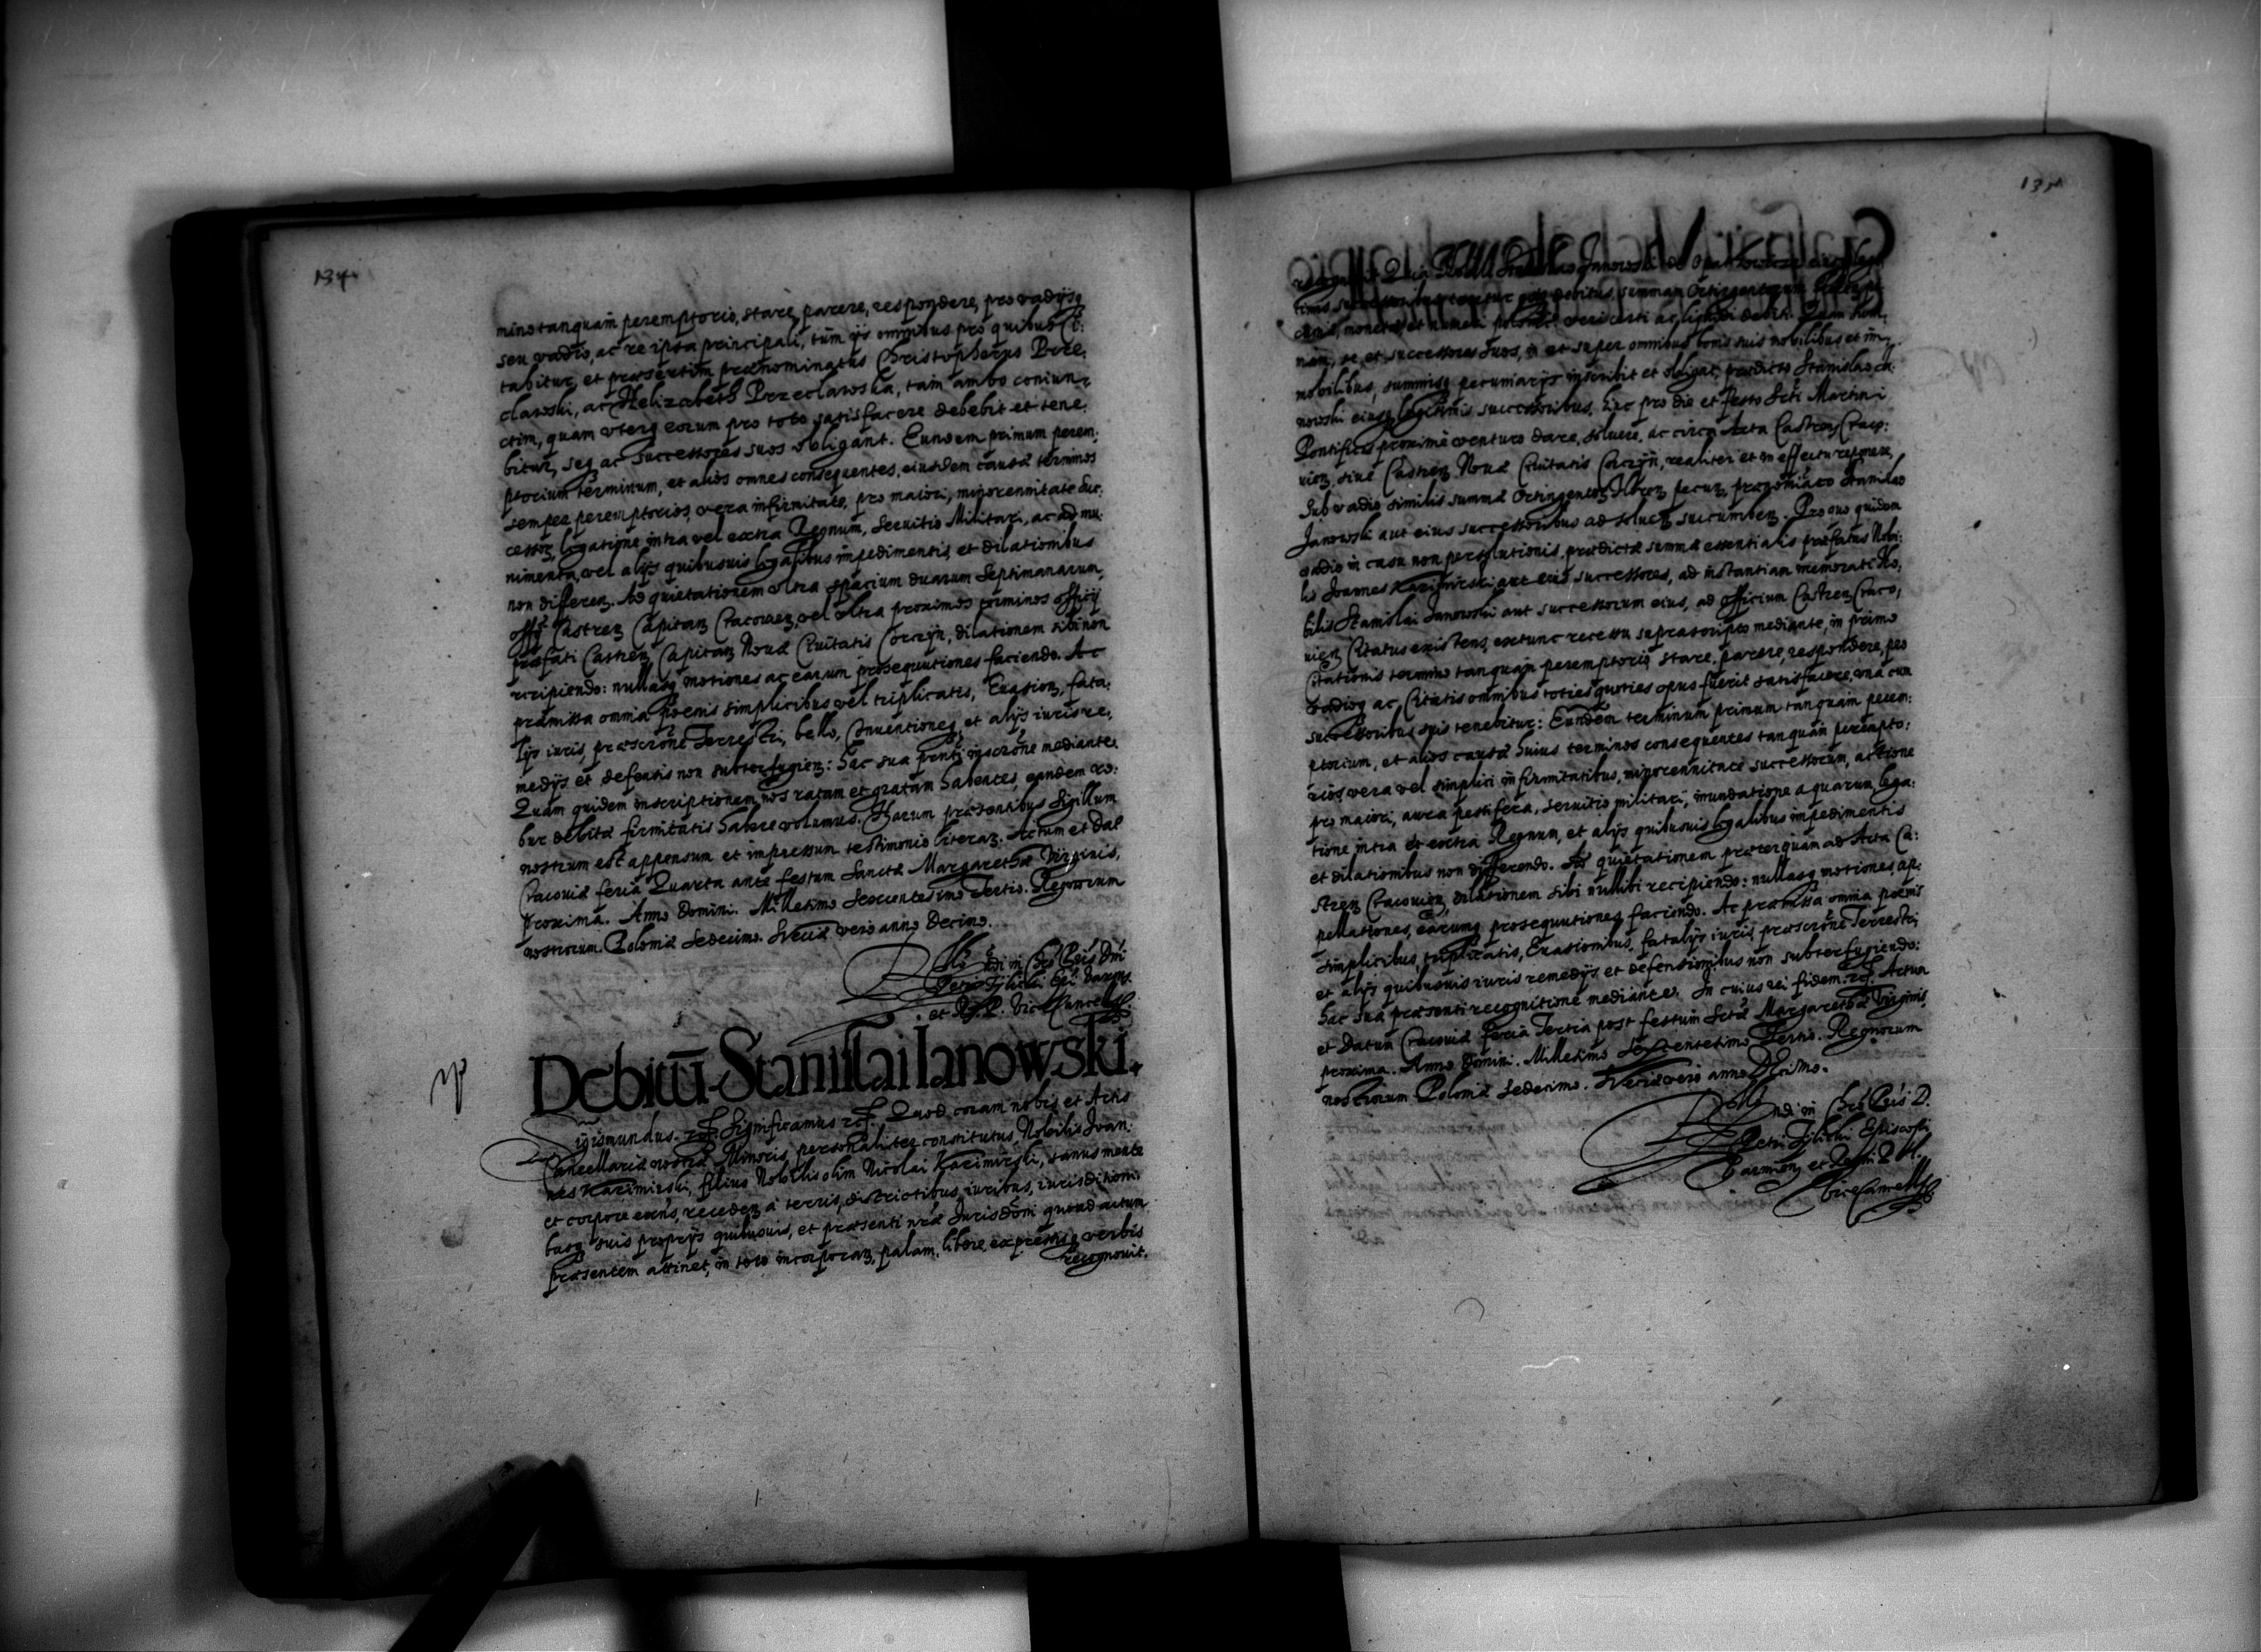 134
mino tanquam peremptorio, stare, parere, respondere, pro vadijsq
seu vadio, ac re ipsa principali, tum ijs omnibus pro quibus Ci:
tabitur, et præsertim prænominatus Christopherus Prze:
clawski, ac Helizabeth Przeclawska, tam ambo coniun:
ctim, quam uterq eorum pro toto satisfacere debebit et tene:
bitur, seq ac successores suos obligant. Eundem primum perem:
ptorium terminum, et alios omnes consequentes, eiusdem causæ terminos
semper peremptorios, vera infirmitate, pro maiori, minorennitate suc:
cessor, legatione intra vel extra Regnum, Seruitio Militari, ac ad mu:
nimenta, vel alijs quibusuis legalibus impedimentis, et dilationibus
non differen. Ad quietationem ultra spacium duarum Septimanarum,
offi Castren Capitan Cracouien, vel ultra proximos terminos officij
præfati Castren Capitan Nouæ Ciuitatis Corczÿn, dilationem sibi non
recipiendo: nullasq motiones ac earum prosequutiones faciendo. Ac
præmissa omnia poenis simplicibus vel triplicatis, Euasion, fata:
lijs iuris, præscrone Terrestri, bello, Inuentioneq, et alijs iuris re:
medijs et defensis non subterfugien: hac sua pnti inscrone mediante.
Quam quidem inscriptionem nos ratam et gratam habentes, eandem ro:
bur debitæ firmitatis habere volumus. Harum præsentibus Sigillum
nostrum est appensum et impressum testimonio literar. Actum et Dat
Cracouiæ feria Quarta ante festum Sanctæ Margarethæ Virginis,
proxima. Anno Domini. Millesimo Sexcentesimo Tertio. Regnorum
nostrorum. Poloniæ Sedecimo. Sveciæ vero anno Decimo.
Rlo ndi in Chro Pris Dni
Petri Tÿlicki Epi Varmi.
et R. P. Vicecancell.
Debitū Stanislai Ianowski.
Sigismundus. rcs. Significamus rcs. Quod coram nobis et Actis
Cancellariæ nostræ Minoris personaliter constitutus, Nobilis Joan:
nes Kazimirski, filius Nobilis olim Nicolai Kazimirski, sanus mente
et corpore exns, receden à terris, districtibus, iuribus, iurisdictioni:
busq suis proprijs quibusuis, et præsenti nræ Jurisdoni quoad actum
præsentem attinet, in toto incorporan, palam, libere, expressisq verbis
recognouit.
135
recognouit, Quia Stanislao Janowski de eiusq legi:
timis successoribus tenetur debitus, summam Octingentorum
monetæ et numeri polonici veri iusti ac debiti. Quam sum:
mam, se, et successores suos, in et super omnibus bonis suis mobilibus et im:
mobilibus, summisq pecuniarijs inscribit et obligat, prædicto Stanislao Ja:
nowski eiusq legitimis successoribus, hic pro die et festo Scti Martini
Pontificis proximè venturo dare, soluere, ac circa Acta Castren Craco:
uien, siue Castren Nouæ Ciuitatis Corczÿn, realiter et in effectu reponere,
Sub vadio similis summæ Octingentor floren pecun, prænoiato Stanislao
Janowski aut eius successoribus ad soluen succumben. Pro quo quidem
vadio in casu non persolutionis prædictæ summæ essentialis præfatus Nobi:
lis Joannes Kazimirski, aut eius successores, ad instantiam memorati No:
bilis Stanislai Janowski aut successorum eius, ad officium Castren Craco:
uien Citatus existens, extunc recessu suprascripto mediante, in primo
Citationis termino tanquam peremptorio stare, parere, respondere, pro
vadioq ac Citatis omnibus toties quoties opus fuerit satisfacere, una cum
successoribus suis tenebitur: Eundem terminum primum tanquam perem:
ptorium, et alios causæ huius terminos consequentes tanquam perempto:
rios, vera vel simplici infirmitatibus, minorennitate successorum, actione
pro maiori, aura pestifera, seruitio militari, inundatione aquarum, lega:
tione intra et extra Regnum, et alijs quibusuis legalibus impedimentis
et dilationibus non differendo. Ad quietationem præterquam ad Acta Ca:
stren Cracouien, dilationem sibi nullibi recipiendo: nullasq motiones, ap:
pellationes, earumq prosequutiones faciendo. Ac præmissa omnia poenis
simplicibus triplicatis, Euasionibus, fatalijs iuris, præscrone Terrestri,
et alijs quibusuis iuris remedijs et defensionibus non subterfugiendo:
hac sua præsenti recognitione mediante. In cuius rei fidem. rcs. Actum
et Datum Cracouiæ feria Tertia post festum Sctæ Margarethæ Virginis,
proxima. Anno Domini. Millesimo Sexcentesimo Tertio. Regnorum
nostrorum Poloniæ Sedecimo. Sveciæ vero anno Decimo.
Rlo ndi in Chro Pris D.
Petri Tÿlicki Episcopi
Varmien, et Regni P
Vicecancell